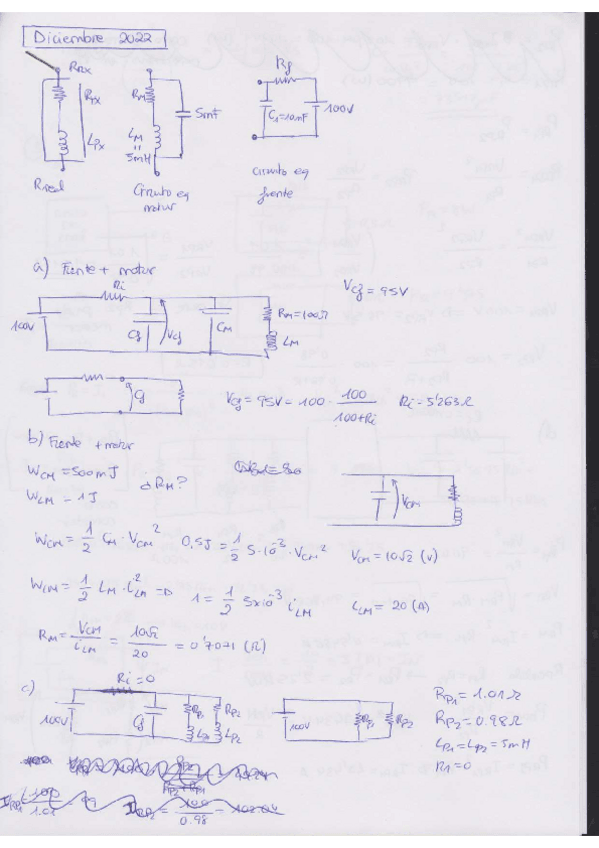 Diciembre 2022
RPx
RPx
LPx
RM
LM
"
5mH
5mF
Rg
C1=10mF
100V
Rreal
Circuito eq
motor
Circuito eq
fuente
a) Fuente + motor
Ri
100V
Cg
Vcg
CM
RM=100Ω
LM
Vcg = 95V
Vcg = 95V = 100 · 100/(100+Ri) Ri = 5'263Ω
b) Fuente + motor
WCM = 500mJ
WLM = 1J
¿RM?
VCM
WCM = 1/2 CM · VCM² 0,5J = 1/2 5·10⁻³ · VCM² VCM = 10√2 (V)
WLM = 1/2 LM · iLM² => 1 = 1/2 5x10⁻³ iLM iLM = 20 (A)
RM = VCM/iLM = 10√2/20 = 0'7071 (Ω)
c)
Ri=0
100V
Cg
RP1
RP2
LP1
LP2
100V
RP1
RP2
RP1 = 1.01Ω
RP2 = 0.98Ω
LP1 = LP2 = 5mH
Ri = 0
IRP1 = 100/1.01 = 99
IRP2 = 100/0.98 = 102.04